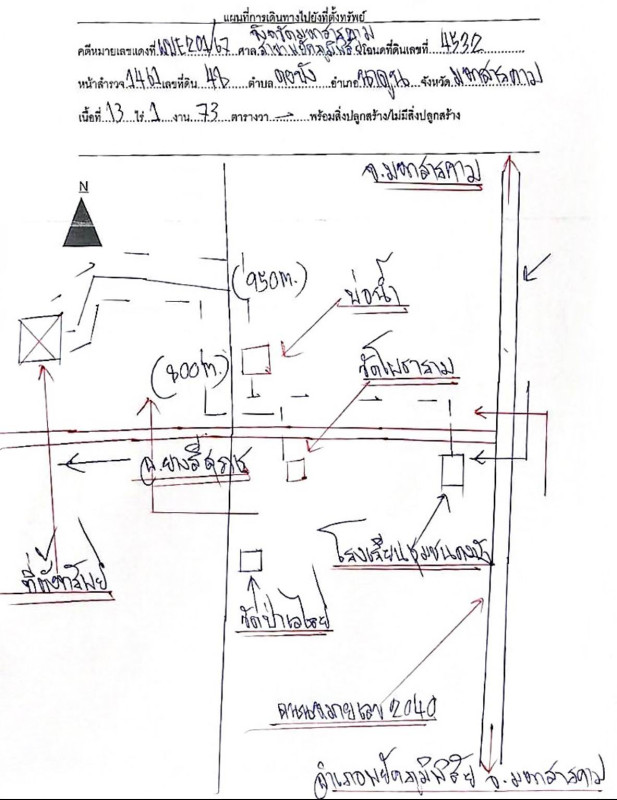 แผนที่การเดินทางไปยังที่ตั้งทรัพย์
จังหวัดมหาสารคาม
คดีหมายเลขแดงที่ ผบE201/67 ศาล สาขาพยัคฆภูมิพิสัย โฉนดที่ดินเลขที่ 4532
หน้าสำรวจ 1461 เลขที่ดิน 48 ตำบล ดงบัง อำเภอ นาดูน จังหวัด มหาสารคาม
เนื้อที่ 13 ไร่ 1 งาน 73 ตารางวา พร้อมสิ่งปลูกสร้าง/ไม่มีสิ่งปลูกสร้าง
จ.มหาสารคาม
N
(950ม.)
บ่อน้ำ
(800ม.)
วัดโพธาราม
อ.ยางสีสุราช
โรงเรียนชุมชนดงบัง
ที่ตั้งทรัพย์
วัดป่าเลไลย์
ถนนหมายเลข 2040
อำเภอพยัคฆภูมิพิสัย จ.มหาสารคาม